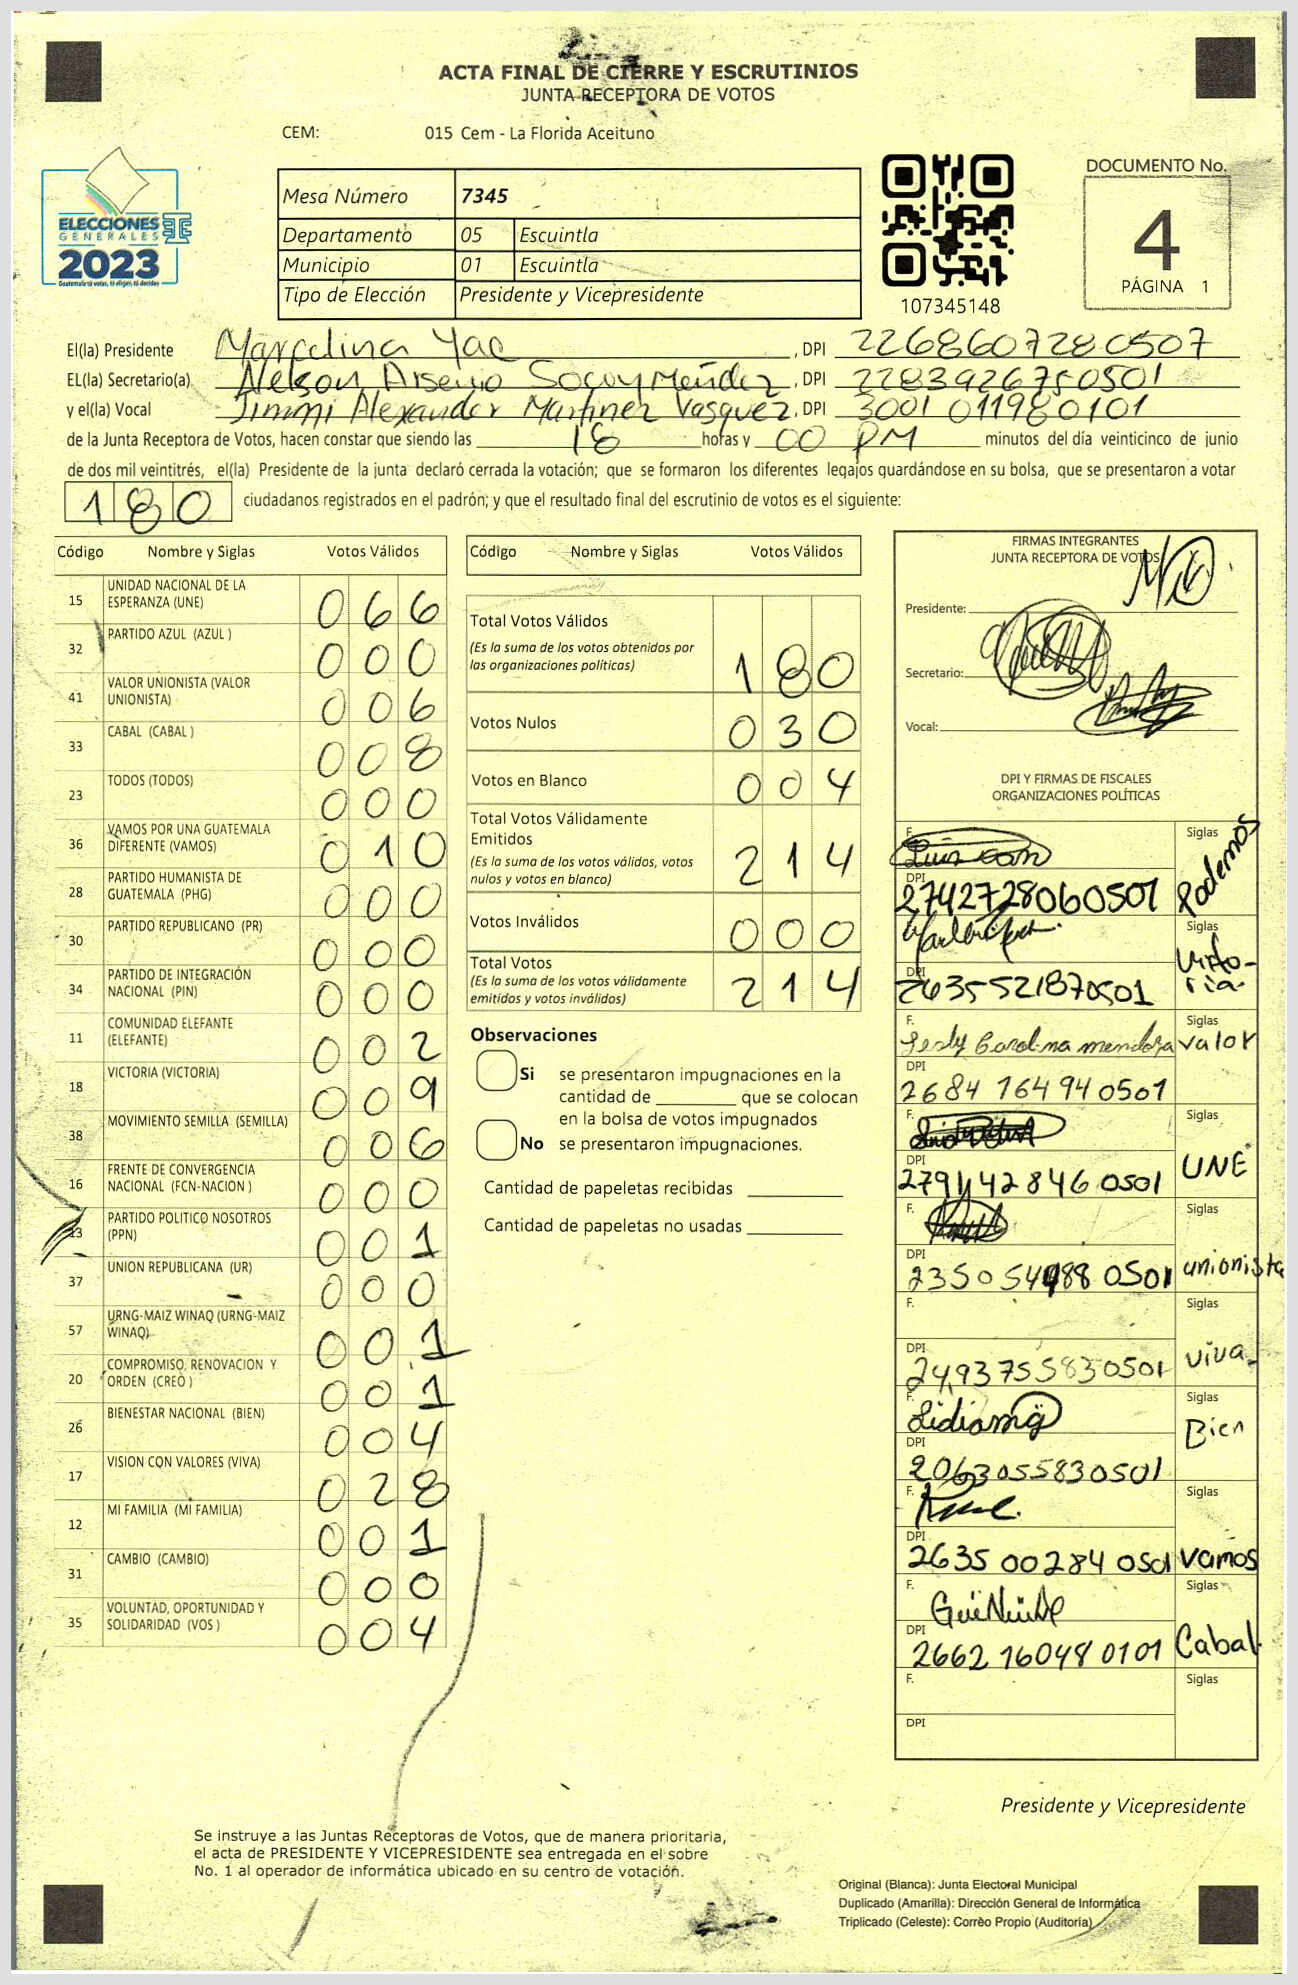 ACTA FINAL DE CIERRE Y ESCRUTINIOS
JUNTA RECEPTORA DE VOTOS
CEM: 015 Cem - La Florida Aceituno
ELECCIONES
GENERALES
2023
Guatemala tú votas, tú eliges, tú decides
Mesa Número 7345
Departamento 05 Escuintla
Municipio 01 Escuintla
Tipo de Elección Presidente y Vicepresidente
107345148
DOCUMENTO No.
4
PÁGINA 1
El(la) Presidente Marcelina Yac, DPI 2268607280507
EL(la) Secretario(a) Nelson Arsenio Socoy Méndez, DPI 2283926750501
y el(la) Vocal Jimmi Alexander Martinez Vasquez, DPI 3001 011980101
de la Junta Receptora de Votos, hacen constar que siendo las 18 horas y 00 PM minutos del día veinticinco de junio
de dos mil veintitrés, el(la) Presidente de la junta declaró cerrada la votación; que se formaron los diferentes legajos guardándose en su bolsa, que se presentaron a votar
180 ciudadanos registrados en el padrón; y que el resultado final del escrutinio de votos es el siguiente:
Código Nombre y Siglas Votos Válidos
15 UNIDAD NACIONAL DE LA ESPERANZA (UNE) 066
32 PARTIDO AZUL (AZUL ) 000
41 VALOR UNIONISTA (VALOR UNIONISTA) 006
33 CABAL (CABAL ) 008
23 TODOS (TODOS) 000
36 VAMOS POR UNA GUATEMALA DIFERENTE (VAMOS) 010
28 PARTIDO HUMANISTA DE GUATEMALA (PHG) 000
30 PARTIDO REPUBLICANO (PR) 000
34 PARTIDO DE INTEGRACIÓN NACIONAL (PIN) 000
11 COMUNIDAD ELEFANTE (ELEFANTE) 002
18 VICTORIA (VICTORIA) 009
38 MOVIMIENTO SEMILLA (SEMILLA) 006
16 FRENTE DE CONVERGENCIA NACIONAL (FCN-NACION ) 000
13 PARTIDO POLITICO NOSOTROS (PPN) 001
37 UNION REPUBLICANA (UR) 000
57 URNG-MAIZ WINAQ (URNG-MAIZ WINAQ) 001
20 COMPROMISO, RENOVACION Y ORDEN (CREO ) 001
26 BIENESTAR NACIONAL (BIEN) 004
17 VISION CON VALORES (VIVA) 028
12 MI FAMILIA (MI FAMILIA) 001
31 CAMBIO (CAMBIO) 000
35 VOLUNTAD, OPORTUNIDAD Y SOLIDARIDAD (VOS ) 004
Código Nombre y Siglas Votos Válidos
Total Votos Válidos 180
(Es la suma de los votos obtenidos por
las organizaciones políticas)
Votos Nulos 030
Votos en Blanco 004
Total Votos Válidamente
Emitidos 214
(Es la suma de los votos válidos, votos
nulos y votos en blanco)
Votos Inválidos 000
Total Votos 214
(Es la suma de los votos válidamente
emitidos y votos inválidos)
Observaciones
Si se presentaron impugnaciones en la
cantidad de ________ que se colocan
en la bolsa de votos impugnados
No se presentaron impugnaciones.
Cantidad de papeletas recibidas
Cantidad de papeletas no usadas
FIRMAS INTEGRANTES
JUNTA RECEPTORA DE VOTOS
Presidente:
Secretario:
Vocal:
DPI Y FIRMAS DE FISCALES
ORGANIZACIONES POLÍTICAS
F. Siglas Podemos
DPI 2742728060501
F. Siglas Victoria
DPI 2635521870501
F. Lesly Carolina mendoza Siglas valor
DPI 2684 16494 0501
F. Siglas UNE
DPI 2791142846 0501
F. Siglas unionista
DPI
F. Siglas viva
DPI 2493755830501
F. Lidiamg Siglas Bien
DPI 2063055830501
F. Siglas vamos
DPI 2635 00284 0501
F. Siglas Cabal
DPI 2662 16048 0101
F. Siglas
DPI
Presidente y Vicepresidente
Se instruye a las Juntas Receptoras de Votos, que de manera prioritaria,
el acta de PRESIDENTE Y VICEPRESIDENTE sea entregada en el sobre
No. 1 al operador de informática ubicado en su centro de votación.
Original (Blanca): Junta Electoral Municipal
Duplicado (Amarilla): Dirección General de Informática
Triplicado (Celeste): Correo Propio (Auditoría)